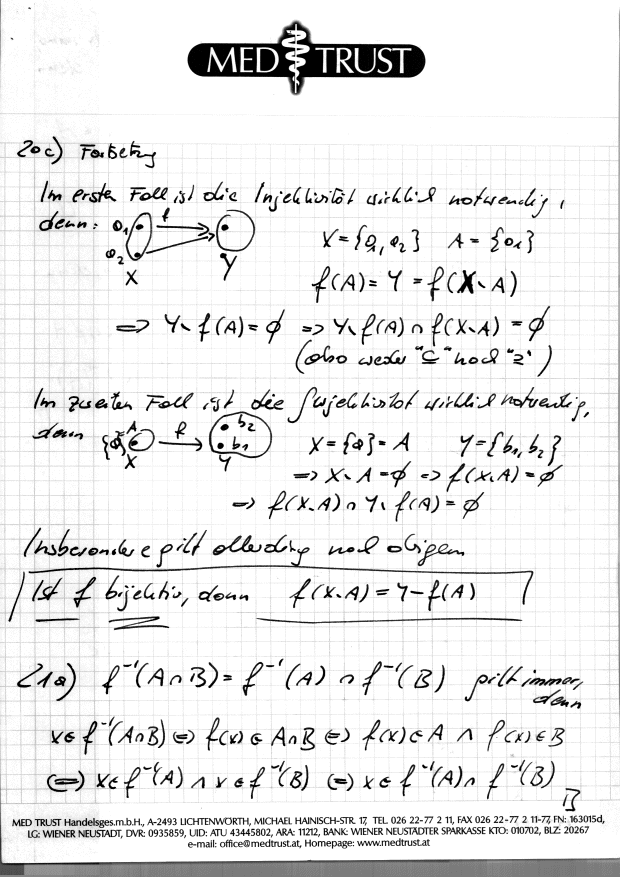 MED TRUST
20c) Fortsetzung
Im ersten Fall ist die Injektivität wirklich notwendig,
denn: a₁ f
a₂ X Y
X = {a₁, a₂} A = {a₁}
f(A) = Y = f(X∖A)
⇒ Y∖f(A) = ∅ ⇒ Y∖f(A) ∩ f(X∖A) = ∅
(also weder "⊆" noch "⊇")
Im zweiten Fall ist die Surjektivität wirklich notwendig,
denn {a} A f b₂
b₁ X Y
X = {a} = A Y = {b₁, b₂}
⇒ X∖A = ∅ ⇒ f(X∖A) = ∅
⇒ f(X∖A) ∩ Y∖f(A) = ∅
Insbesondere gilt allerding nach obigem
Ist f bijektiv, dann f(X∖A) = Y − f(A)
21a) f⁻¹(A∩B) = f⁻¹(A) ∩ f⁻¹(B) gilt immer,
denn
x ∈ f⁻¹(A∩B) ⇔ f(x) ∈ A∩B ⇔ f(x) ∈ A ∧ f(x) ∈ B
⇔ x ∈ f⁻¹(A) ∧ x ∈ f⁻¹(B) ⇔ x ∈ f⁻¹(A) ∩ f⁻¹(B)
MED TRUST Handelsges.m.b.H., A-2493 LICHTENWORTH, MICHAEL HAINISCH-STR. 17, TEL. 026 22-77 2 11, FAX 026 22-77 2 11-77, FN: 163015d,
LG: WIENER NEUSTADT, DVR: 0935859, UID: ATU 43445802, ARA: 11212, BANK: WIENER NEUSTÄDTER SPARKASSE KTO: 010702, BLZ: 20267
e-mail: office@medtrust.at, Homepage: www.medtrust.at